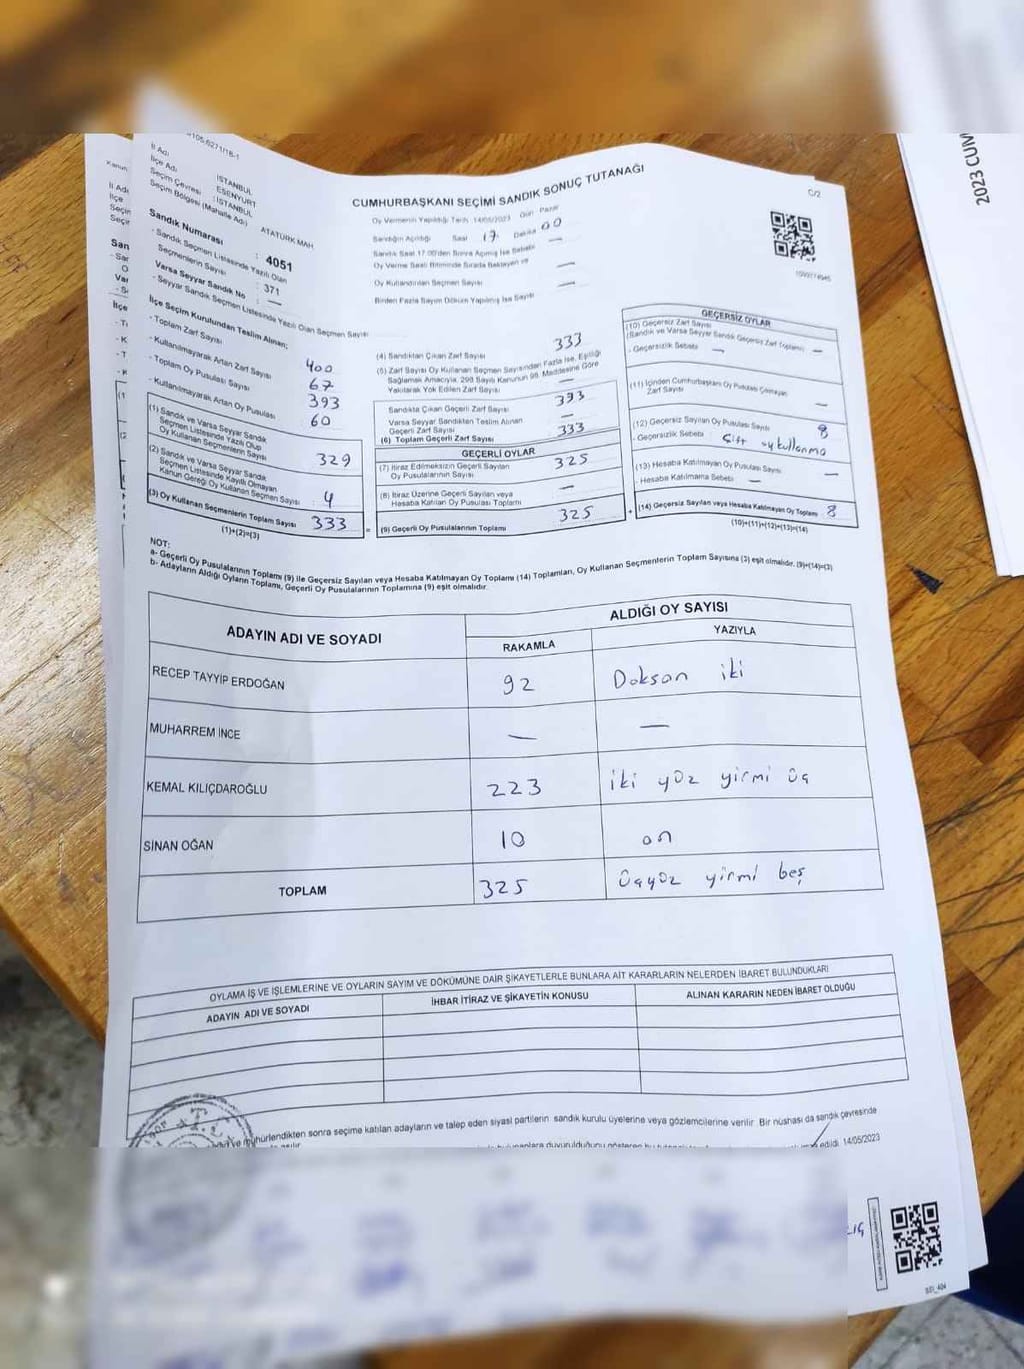 CUMHURBAŞKANI SEÇİMİ SANDIK SONUÇ TUTANAĞI
C/2
2023 CUM
İl Adı : İSTANBUL
İlçe Adı : ESENYURT
Seçim Çevresi : İSTANBUL
Seçim Bölgesi (Mahalle Adı) ATATÜRK MAH
Sandık Numarası : 4051
- Sandık Seçmen Listesinde Yazılı Olan
Seçmenlerin Sayısı : 371
Varsa Seyyar Sandık No : —
- Seyyar Sandık Seçmen Listesinde Yazılı Olan Seçmen Sayısı
Oy Vermenin Yapıldığı Tarih 14/05/2023 Gün Pazar
Sandığın Açıldığı Saat 17 Dakika 00
Sandık Saat 17.00'den Sonra Açılmış İse Sebebi —
Oy Verme Saati Bitiminde Sırada Bekleyen ve
Oy Kullandırılan Seçmen Sayısı —
Birden Fazla Sayım Döküm Yapılmış İse Sayısı —
İlçe Seçim Kurulundan Teslim Alınan;
- Toplam Zarf Sayısı 400
- Kullanılmayarak Artan Zarf Sayısı 67
- Toplam Oy Pusulası Sayısı 393
- Kullanılmayarak Artan Oy Pusulası 60
(1) Sandık ve Varsa Seyyar Sandık
Seçmen Listesinde Yazılı Olup
Oy Kullanan Seçmenlerin Sayısı 329
(2) Sandık ve Varsa Seyyar Sandık
Seçmen Listesinde Kayıtlı Olmayan
Kanun Gereği Oy Kullanan Seçmen Sayısı : 4
(3) Oy Kullanan Seçmenlerin Toplam Sayısı 333
(1)+(2)=(3)
(4) Sandıktan Çıkan Zarf Sayısı 333
(5) Zarf Sayısı Oy Kullanan Seçmen Sayısından Fazla İse, Eşitliği
Sağlamak Amacıyla, 298 Sayılı Kanunun 98. Maddesine Göre
Yakılarak Yok Edilen Zarf Sayısı —
Sandıkta Çıkan Geçerli Zarf Sayısı 333
Varsa Seyyar Sandıkten Teslim Alınan
Geçerli Zarf Sayısı —
(6) Toplam Geçerli Zarf Sayısı 333
GEÇERLİ OYLAR
(7) İtiraz Edilmeksizin Geçerli Sayılan
Oy Pusulalarının Sayısı 325
(8) İtiraz Üzerine Geçerli Sayılan veya
Hesaba Katılan Oy Pusulası Toplamı —
(9) Geçerli Oy Pusulalarının Toplamı 325
GEÇERSİZ OYLAR
(10) Geçersiz Zarf Sayısı
(Sandık ve Varsa Seyyar Sandık Geçersiz Zarf Toplamı) —
- Geçersizlik Sebebi —
(11) İçinden Cumhurbaşkanı Oy Pusulası Çıkmayan
Zarf Sayısı —
(12) Geçersiz Sayılan Oy Pusulası Sayısı 8
- Geçersizlik Sebebi : Çift oy kullanma
(13) Hesaba Katılmayan Oy Pusulası Sayısı —
- Hesaba Katılmama Sebebi —
(14) Geçersiz Sayılan veya Hesaba Katılmayan Oy Toplamı 8
(10)+(11)+(12)+(13)=(14)
NOT:
a- Geçerli Oy Pusulalarının Toplamı (9) ile Geçersiz Sayılan veya Hesaba Katılmayan Oy Toplamı (14) Toplamları, Oy Kullanan Seçmenlerin Toplam Sayısına (3) eşit olmalıdır. (9)+(14)=(3)
b- Adayların Aldığı Oyların Toplamı, Geçerli Oy Pusulalarının Toplamına (9) eşit olmalıdır.
ADAYIN ADI VE SOYADI ALDIĞI OY SAYISI
RAKAMLA YAZIYLA
RECEP TAYYİP ERDOĞAN 92 Doksan iki
MUHARREM İNCE — —
KEMAL KILIÇDAROĞLU 223 iki yüz yirmi üç
SİNAN OĞAN 10 on
TOPLAM 325 üçyüz yirmi beş
OYLAMA İŞ VE İŞLEMLERİNE VE OYLARIN SAYIM VE DÖKÜMÜNE DAİR ŞİKAYETLERLE BUNLARA AİT KARARLARIN NELERDEN İBARET BULUNDUKLARI
ADAYIN ADI VE SOYADI İHBAR İTİRAZ VE ŞİKAYETİN KONUSU ALINAN KARARIN NEDEN İBARET OLDUĞU
mühürlendikten sonra seçime katılan adayların ve talep eden siyasi partilerin sandık kurulu üyelerine veya gözlemcilerine verilir. Bir nüshası da sandık çevresinde
edildi. 14/05/2023